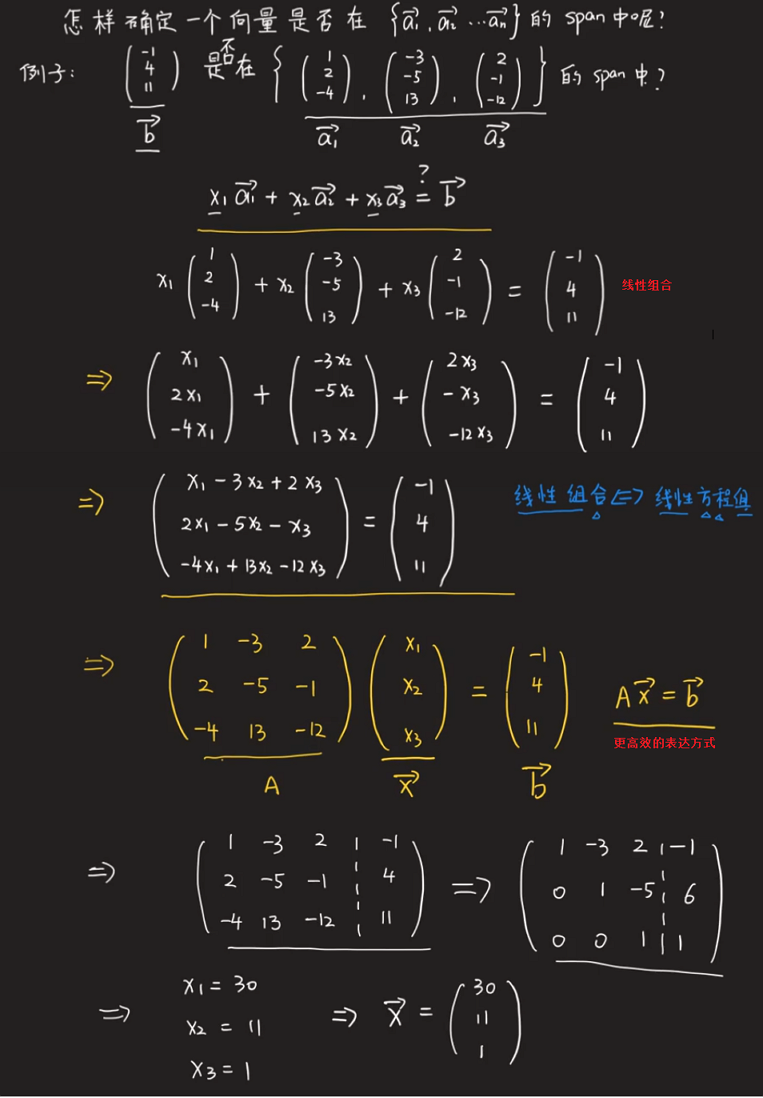 怎样确定一个向量是否在 {a₁⃗, a₂⃗ ⋯ aₙ⃗} 的 span 中呢?
例子: (-1 4 11) 是否在 { (1 2 -4), (-3 -5 13), (2 -1 -12) } 的 span 中?
b⃗ a₁⃗ a₂⃗ a₃⃗
x₁a₁⃗ + x₂a₂⃗ + x₃a₃⃗ =? b⃗
x₁ (1 2 -4) + x₂ (-3 -5 13) + x₃ (2 -1 -12) = (-1 4 11) 线性组合
⇒ (x₁ 2x₁ -4x₁) + (-3x₂ -5x₂ 13x₂) + (2x₃ -x₃ -12x₃) = (-1 4 11)
⇒ (x₁ - 3x₂ + 2x₃
2x₁ - 5x₂ - x₃
-4x₁ + 13x₂ - 12x₃) = (-1 4 11)
线性组合 ⇔ 线性方程组
⇒ (1 -3 2
2 -5 -1
-4 13 -12) (x₁ x₂ x₃) = (-1 4 11) Ax⃗ = b⃗
更高效的表达方式
A x⃗ b⃗
⇒ (1 -3 2 ¦ -1
2 -5 -1 ¦ 4
-4 13 -12 ¦ 11)
⇒ (1 -3 2 ¦ -1
0 1 -5 ¦ 6
0 0 1 ¦ 1)
⇒ x₁ = 30
x₂ = 11
x₃ = 1
⇒ x⃗ = (30 11 1)